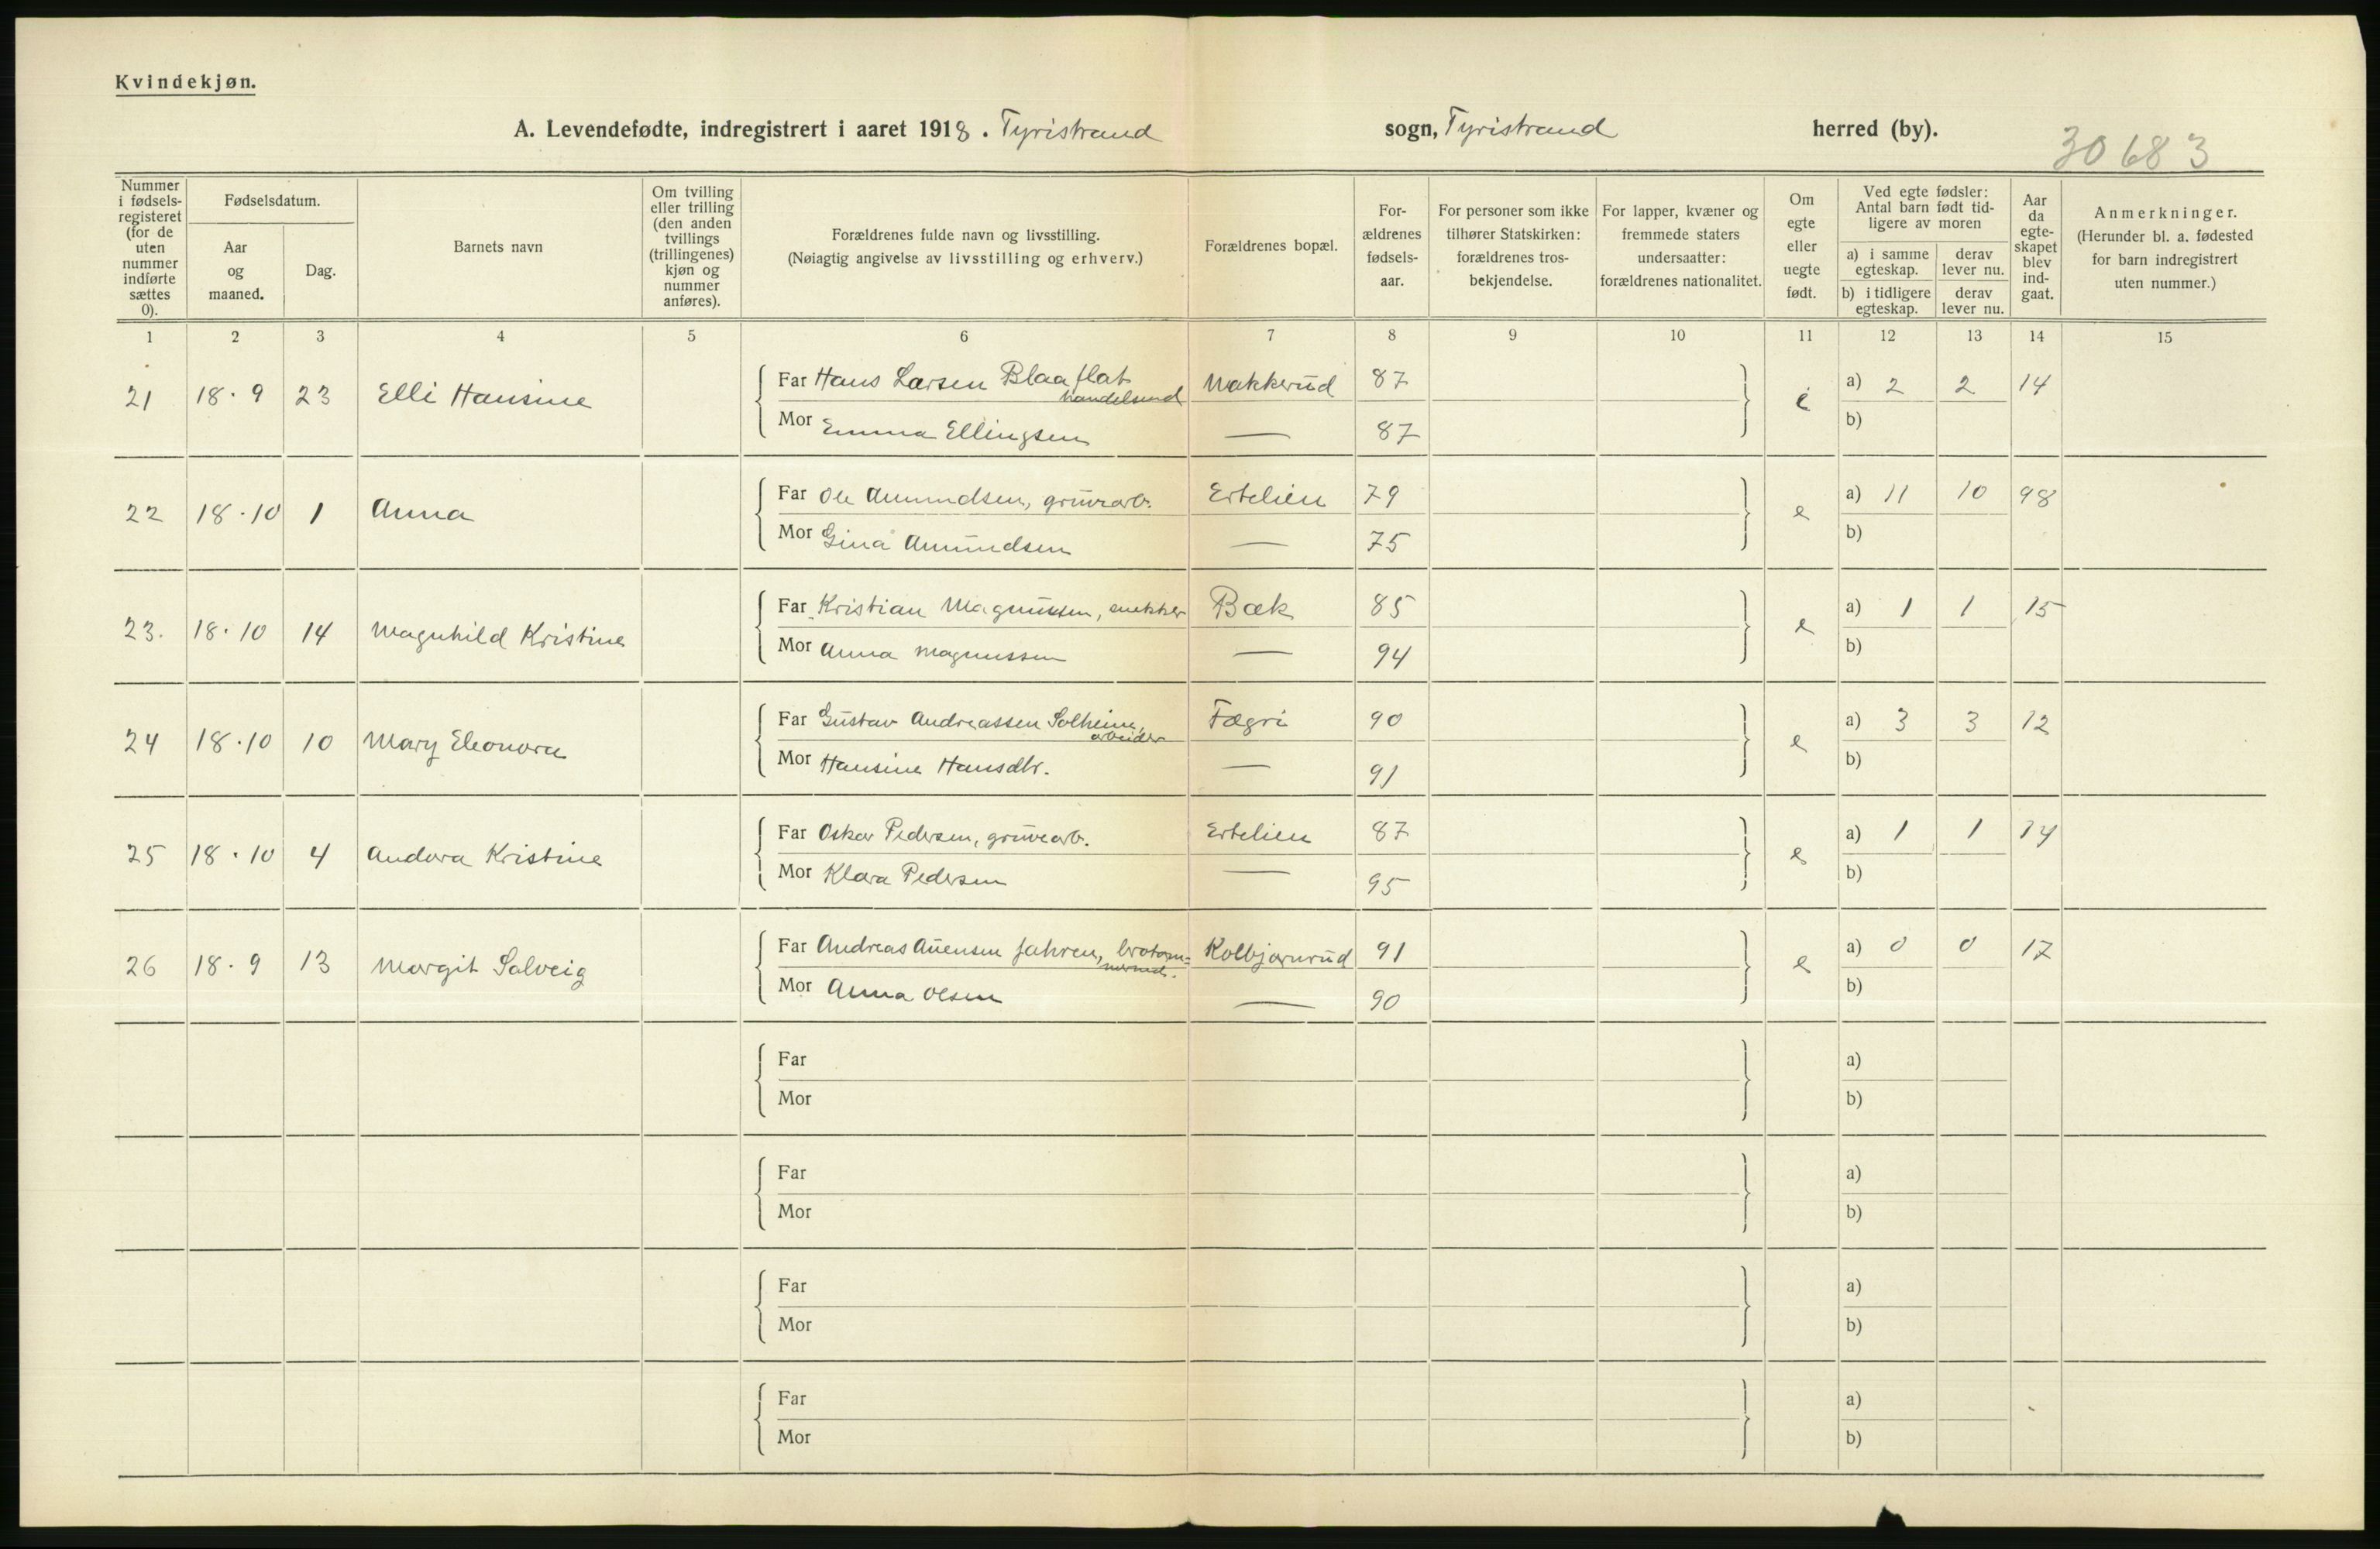 Kvindekjøn.
A. Levendefødte, indregistrert i aaret 1918. Tyristrand sogn, Tyristrand herred (by).
30683
Nummer i fødsels-registeret (for de uten nummer indførte sættes 0).
Fødselsdatum.
Aar og maaned.
Dag.
Barnets navn
Om tvilling eller trilling (den anden tvillings (trillingenes) kjøn og nummer anføres).
Forældrenes fulde navn og livsstilling.
(Nøiagtig angivelse av livsstilling og erhverv.)
Forældrenes bopæl.
For-ældrenes fødsels-aar.
For personer som ikke tilhører Statskirken: forældrenes tros-bekjendelse.
For lapper, kvæner og fremmede staters undersaatter: forældrenes nationalitet.
Om egte eller uegte født.
Ved egte fødsler: Antal barn født tid-ligere av moren
a) i samme egteskap.
derav lever nu.
b) i tidligere egteskap.
derav lever nu.
Aar da egte-skapet blev ind-gaat.
Anmerkninger.
(Herunder bl. a. fødested for barn indregistrert uten nummer.)
1 2 3 4 5 6 7 8 9 10 11 12 13 14 15
21 18·9 23 Elli Hansine Far Hans Larsen Blaaflat handelsmd Nakkerud 87 e a) 2 2 14
Mor Emma Ellingsen — 87 b)
22 18·10 1 Anna Far Ole Amundsen, gruvearb. Ertelien 79 e a) 11 10 98
Mor Gina Amundsen — 75 b)
23. 18·10 14 Magnhild Kristine Far Kristian Magnussen, snekker Bæk 85 e a) 1 1 15
Mor Anna Magnussen — 94 b)
24 18·10 10 Mary Eleonora Far Gustav Andreassen Solheim, arbeider Fægri 90 e a) 3 3 12
Mor Hansine Hansdtr. — 91 b)
25 18·10 4 Andora Kristine Far Oskar Pedersen, gruvearb. Ertelien 87 e a) 1 1 14
Mor Klara Pedersen — 95 b)
26 18·9 13 Margit Solveig Far Andreas Auensen Jahren, Kolbjørnrud 91 e a) 0 0 17
Mor Anna Olsen — 90 b)
Far a)
Mor b)
Far a)
Mor b)
Far a)
Mor b)
Far a)
Mor b)